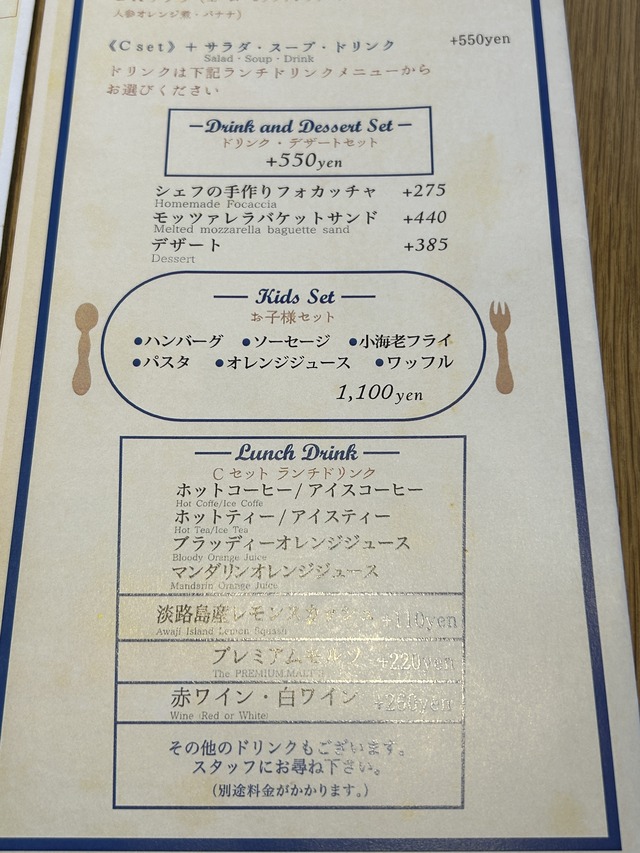 人参オレンジ煮・バナナ)
《C set》+ サラダ・スープ・ドリンク +550yen
Salad・Soup・Drink
ドリンクは下記ランチドリンクメニューから
お選びください
Drink and Dessert Set
ドリンク・デザートセット
+550yen
シェフの手作りフォカッチャ +275
Homemade Focaccia
モッツァレラバケットサンド +440
Melted mozzarella baguette sand
デザート +385
Dessert
Kids Set
お子様セット
●ハンバーグ ●ソーセージ ●小海老フライ
●パスタ ●オレンジジュース ●ワッフル
1,100yen
Lunch Drink
C セット ランチドリンク
ホットコーヒー/アイスコーヒー
Hot Coffe/Ice Coffe
ホットティー/アイスティー
Hot Tea/Ice Tea
ブラッディーオレンジジュース
Bloody Orange Juice
マンダリンオレンジジュース
Mandarin Orange Juice
淡路島産レモンスカッシュ +110yen
Awaji Island Lemon Squash
プレミアムモルツ +220yen
The PREMIUM MALT'S
赤ワイン・白ワイン
Wine (Red or White)
その他のドリンクもございます。
スタッフにお尋ね下さい。
(別途料金がかかります。)